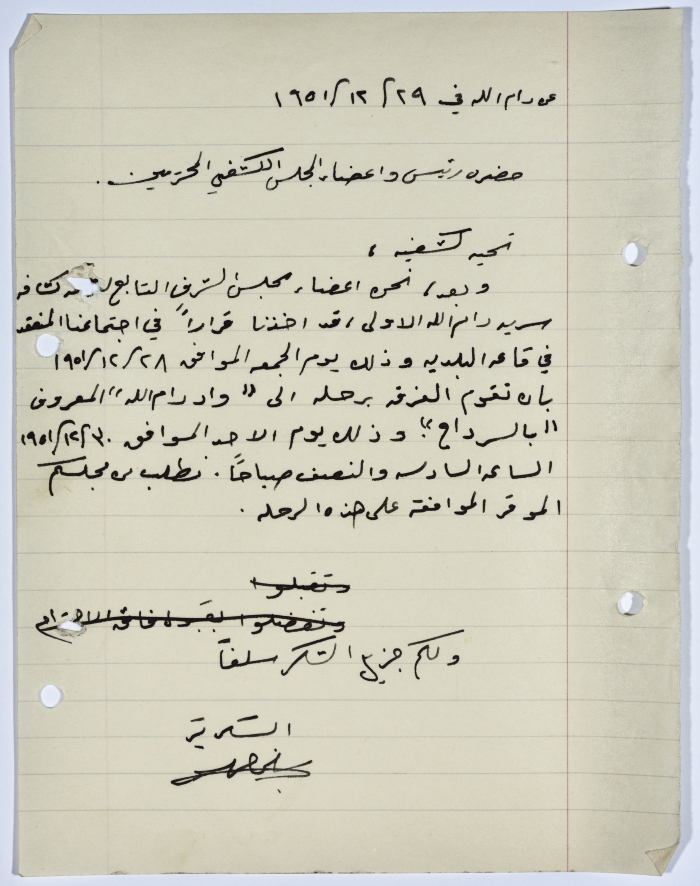 عن رام الله في ٢٩/١٢/١٩٥١
حضرة رئيس واعضاء المجلس الكشفي المحترمين .
تحيه كشفيه ،
وبعد ، نحن اعضاء مجلس الشرف التابع كشافه
سرية رام الله الاولى ، قد اخذنا قراراً في اجتماعنا المنعقد
في قاعه البلديه وذلك يوم الجمعه الموافق ٢٨/١٢/١٩٥١
بان تقوم الفرقه برحله الى "واد رام الله" المعروف
"بالسرداح" وذلك يوم الاحد الموافق ٣٠/١٢/١٩٥١
الساعه السادسه والنصف صباحاً . نطلب من مجلسكم
الموقر الموافقه على هذه الرحله .
وتقبلوا
وتفضلوا بقبول فائق الاحترام
ولكم جزيل الشكر سلفاً
السكرتير